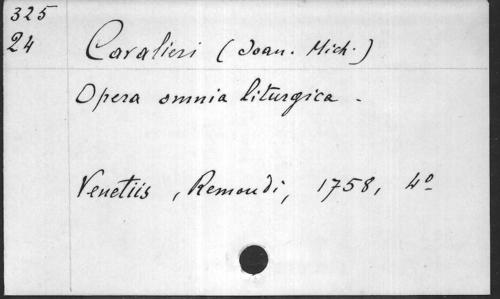 325
24
Cavalieri (Joan. Mich.)
Opera omnia liturgica.
Venetiis, Remondi, 1758, 4º